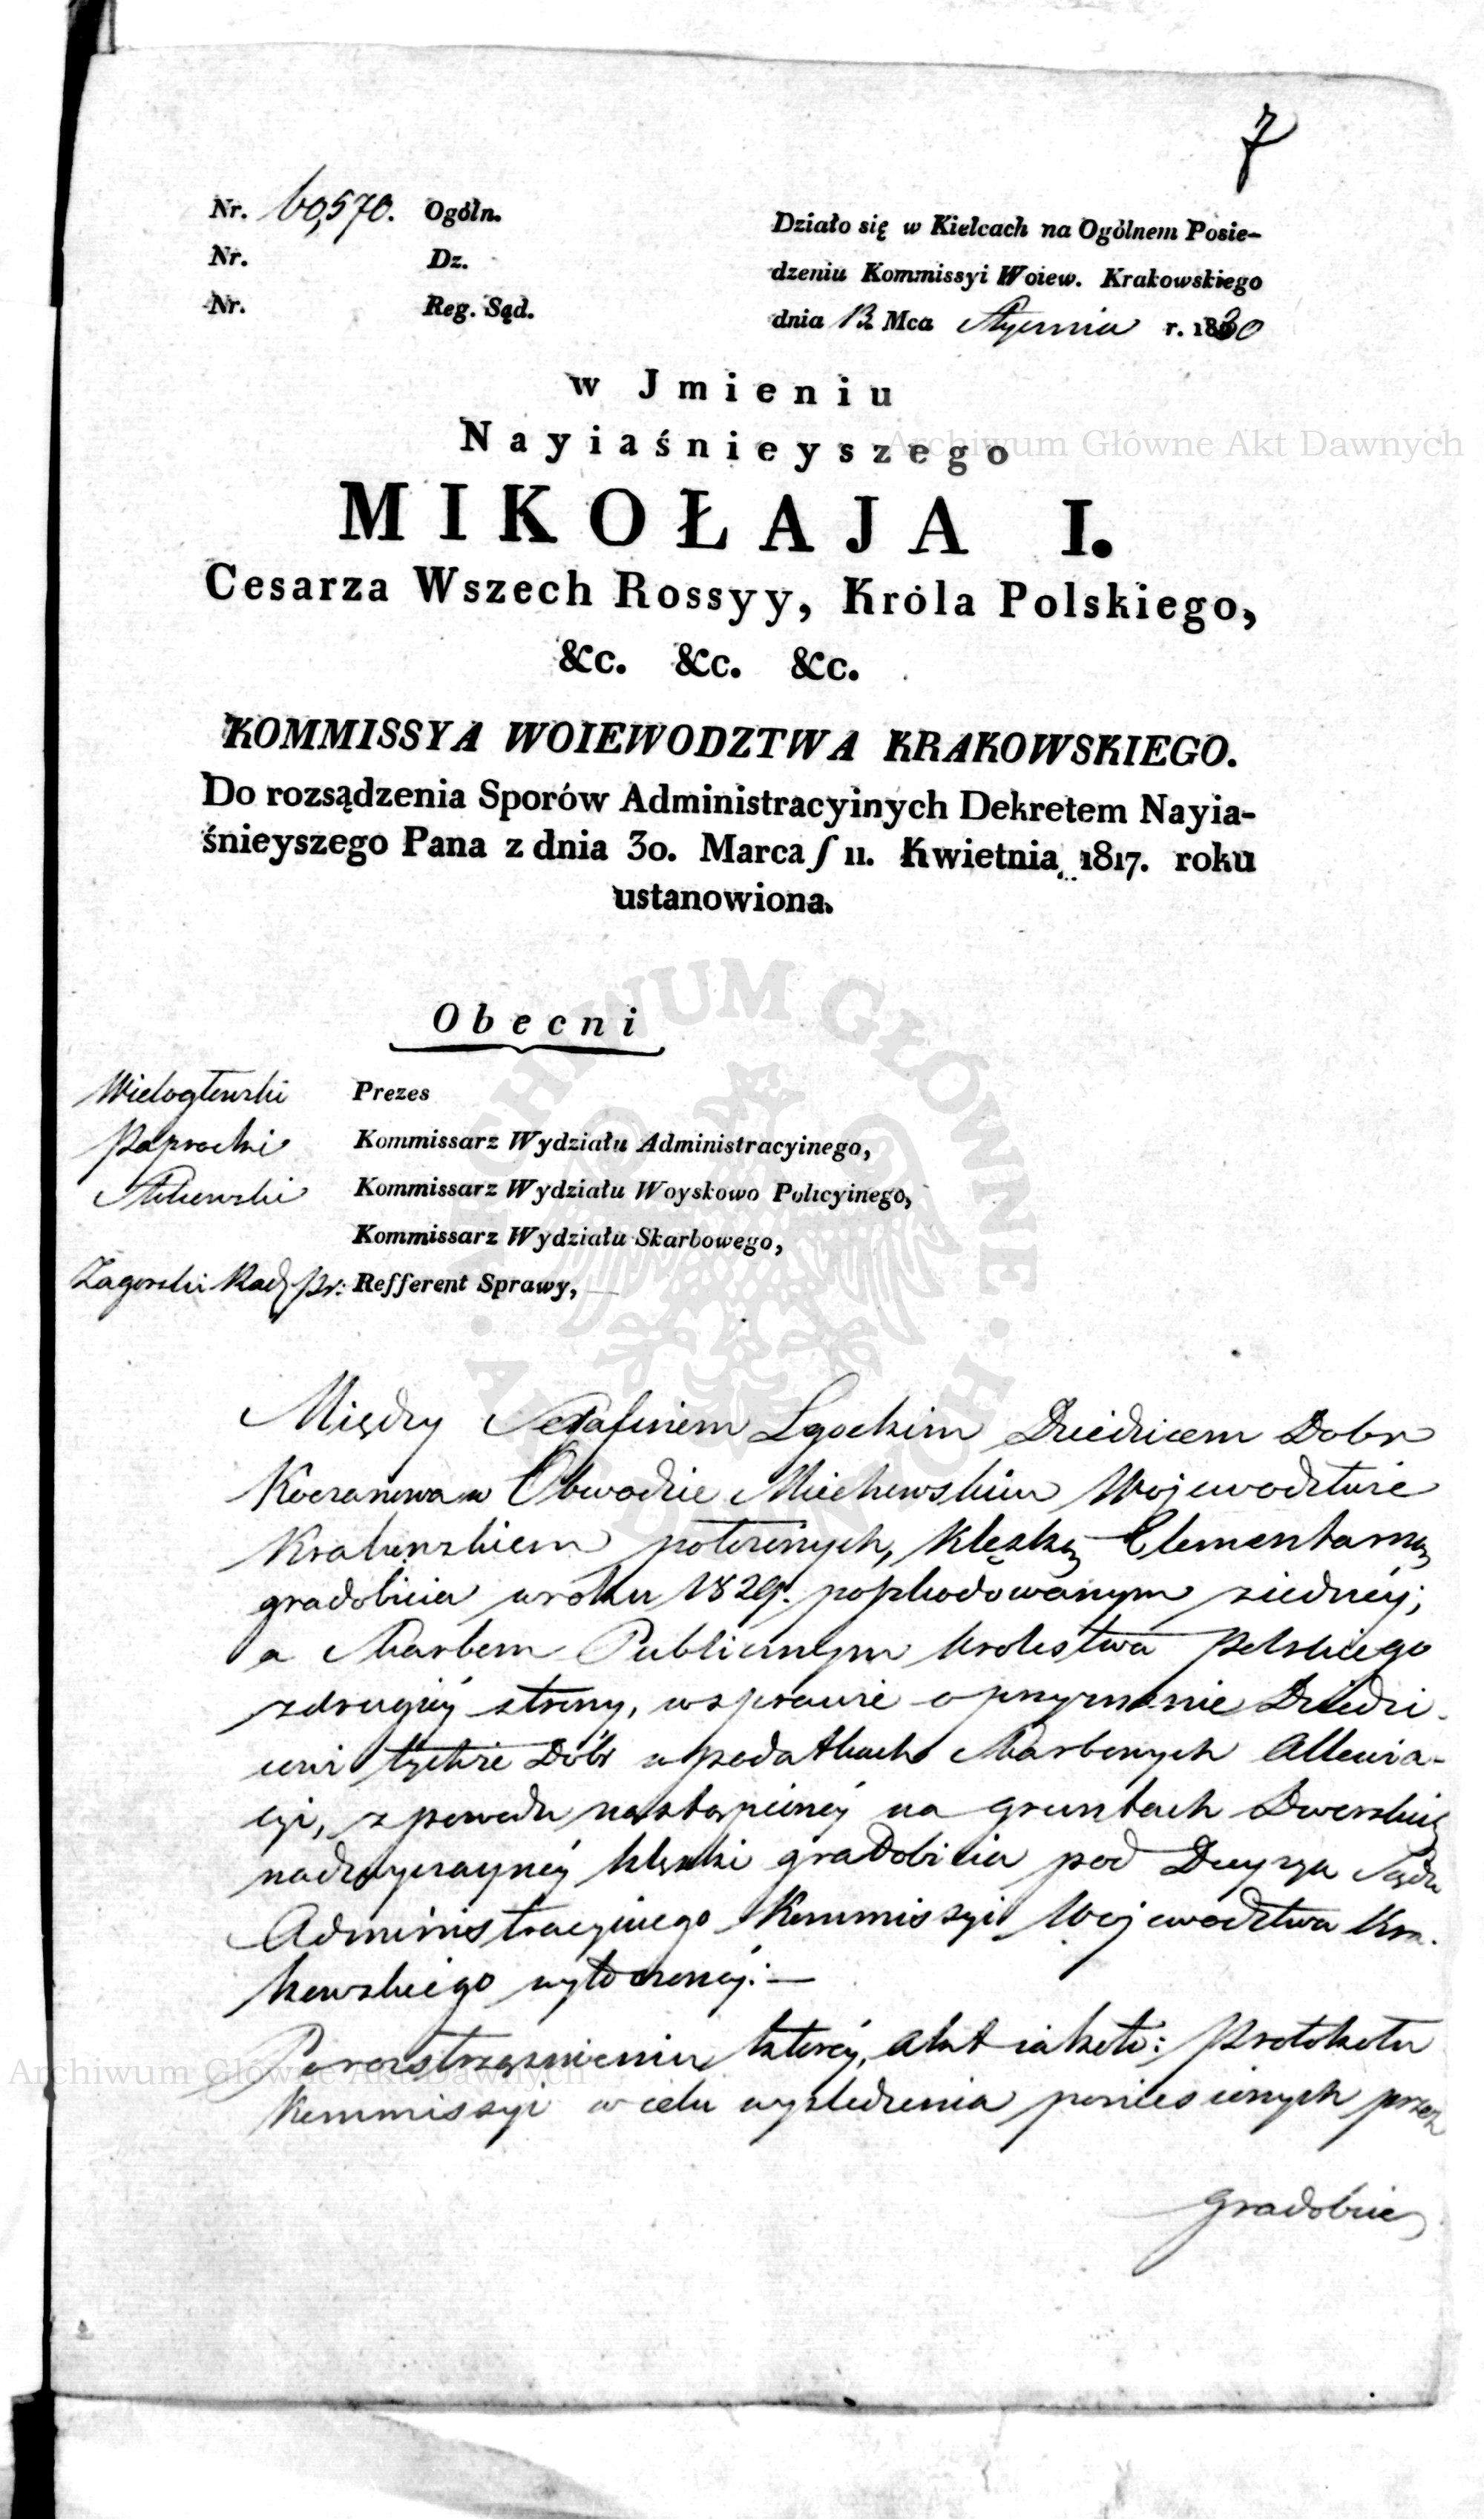 7
Nr. 60,570. Ogóln.
Nr. Dz.
Nr. Reg. Sąd.
Działo się w Kielcach na Ogólnem Posie-
dzeniu Kommissyi Woiew. Krakowskiego
dnia 13 Mca Stycznia r. 1830
w Jmieniu
Nayiaśnieyszego
MIKOŁAJA I.
Cesarza Wszech Rossyy, Króla Polskiego,
&c. &c. &c.
KOMMISSYA WOIEWODZTWA KRAKOWSKIEGO.
Do rozsądzenia Sporów Administracyinych Dekretem Nayia-
śnieyszego Pana z dnia 30. Marca ∫ 11. Kwietnia 1817. roku
ustanowiona.
Obecni
Wielogłowski Prezes
Paprocki Kommissarz Wydziału Administracyinego,
Kommissarz Wydziału Woyskowo Policyinego,
Kommissarz Wydziału Skarbowego,
Zagorski Rad. Pr: Refferent Sprawy,
Między Serafinem Lgockim Dziedzicem Dobr
Koczanowa w Obwodzie Miechowskim Wojewodztwie
Krakowskiem położonych, klęską Elementarną
gradobicia w roku 1829. poszkodowanym z iedney;
a Skarbem Publicznym Krolestwa Polskiego
z drugiéy strony, w sprawie o przyznanie Dziedzi-
cowi tychże Dóbr w podatkach Skarbowych Allewia-
cyi, z powodu nastąpioney na gruntach Dworskich
nadzwyczayney klęski gradobicia pod Decyzyą Sądu
Administracyinego Kommissyi Wojewodztwa Kra-
kowskiego wytoczoney:—
Po rozstrząśnieniu ktorey, akt iakoto: Protokołu
Kommissyi w celu wyśledzenia poniesionych przez
gradobicie
Archiwum Główne Akt Dawnych
ARCHIWUM GŁÓWNE AKT DAWNYCH
Archiwum Główne Akt Dawnych